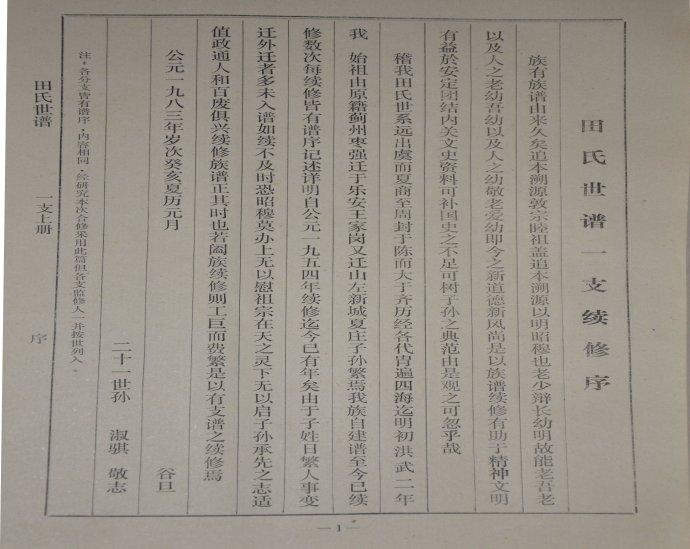 田氏世谱一支续修序
族有族谱由来久矣追本溯源敦宗睦祖盖追本溯源以明昭穆也老少辩长幼明故能老吾老
以及人之老幼吾幼以及人之幼敬老爱幼即今之新道德新风尚是以族谱续修有助于精神文明
有益於安定团结内关文史资料可补国史之不足可树子孙之典范由是观之可忽乎哉
稽我田氏世系远出虞而夏商至周封于陈而大于齐历经各代胄遍四海迄明初洪武二年
我 始祖由原籍蓟州枣强迁于乐安王家岗又迁山左新城夏庄子孙繁焉我族自建谱至今已续
修数次每续修皆有谱序记述详明自公元一九五四年续修迄今已有年矣由于子姓日繁人事变
迁外迁者多未入谱如续不及时恐昭穆莫办上无以慰祖宗在天之灵下无以启子孙承先之志适
值政通人和百废俱兴续修族谱正其时也若阖族续修则工巨而费繁是以有支谱之续修焉
公元一九八三年岁次癸亥夏历元月 谷旦
二十一世孙 淑骐 敬志
注：各分支皆有谱序，内容相同，经研究本次合修采用此篇但各支监修人一并按世列入。
田氏世谱 一支上册 序
— 1 —